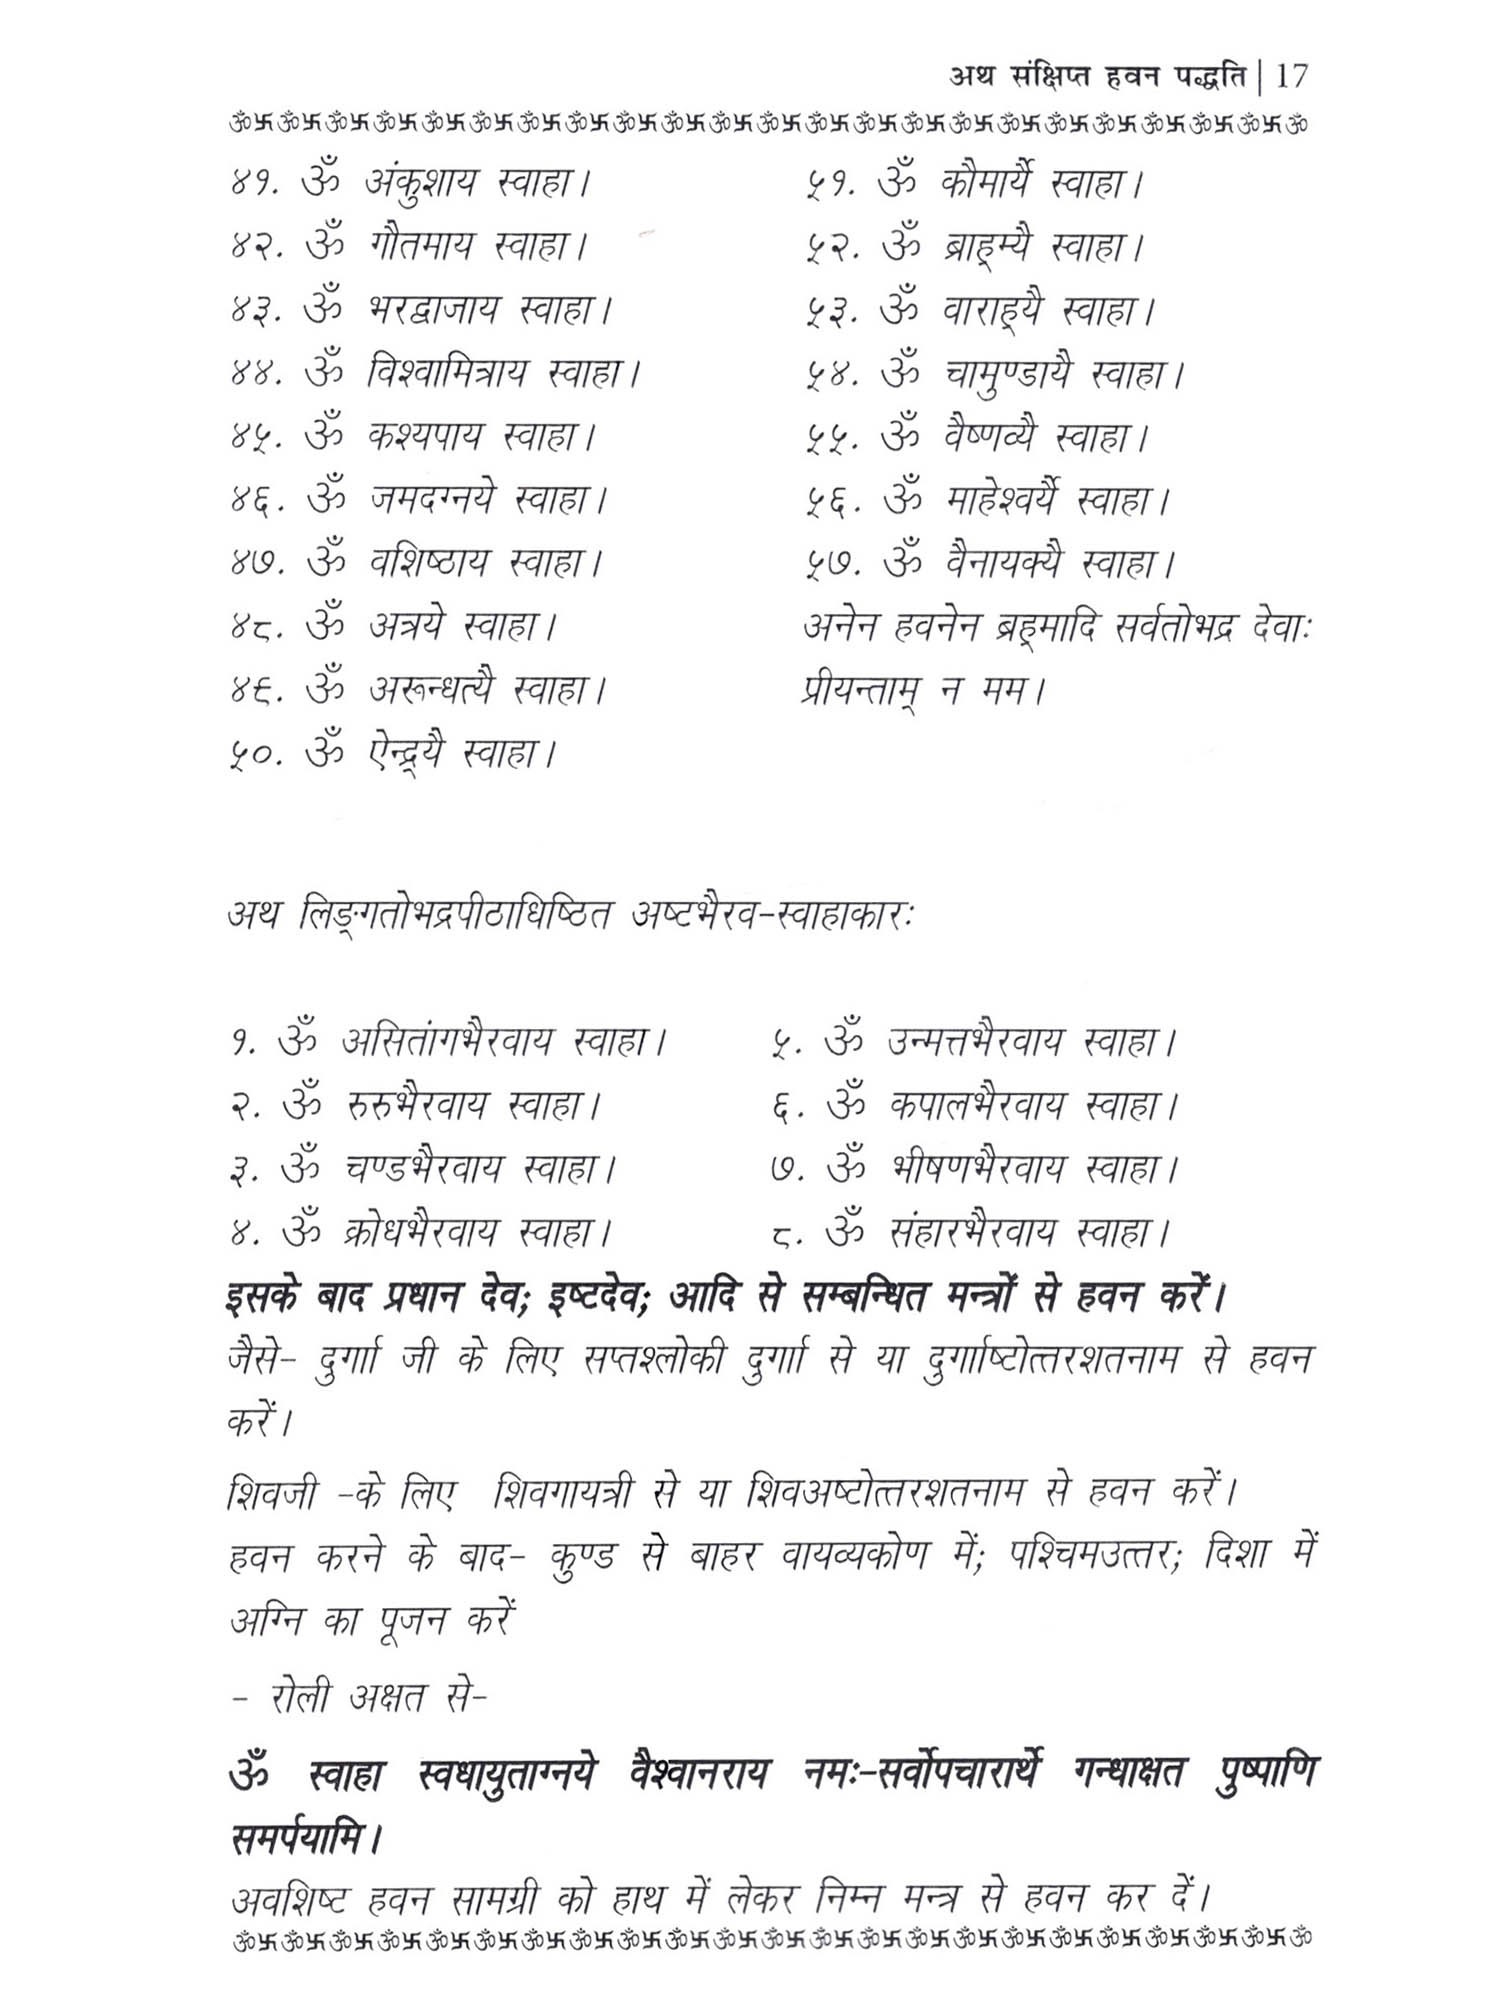 अथ संक्षिप्त हवन पद्धति | 17
ॐ卐ॐ卐ॐ卐ॐ卐ॐ卐ॐ卐ॐ卐ॐ卐ॐ卐ॐ卐ॐ卐ॐ卐ॐ卐ॐ卐ॐ卐ॐ卐ॐ卐ॐ卐ॐ卐ॐ卐ॐ卐ॐ卐ॐ
४१. ॐ अंकुशाय स्वाहा।
४२. ॐ गौतमाय स्वाहा।
४३. ॐ भरद्वाजाय स्वाहा।
४४. ॐ विश्वामित्राय स्वाहा।
४५. ॐ कश्यपाय स्वाहा।
४६. ॐ जमदग्नये स्वाहा।
४७. ॐ वशिष्ठाय स्वाहा।
४८. ॐ अत्रये स्वाहा।
४९. ॐ अरून्धत्यै स्वाहा।
५०. ॐ ऐन्द्र्यै स्वाहा।
५१. ॐ कौमार्यै स्वाहा।
५२. ॐ ब्राह्म्यै स्वाहा।
५३. ॐ वाराह्यै स्वाहा।
५४. ॐ चामुण्डायै स्वाहा।
५५. ॐ वैष्णव्यै स्वाहा।
५६. ॐ माहेश्वर्यै स्वाहा।
५७. ॐ वैनायक्यै स्वाहा।
अनेन हवनेन ब्रह्मादि सर्वतोभद्र देवाः
प्रीयन्ताम् न मम।
अथ लिङ्गतोभद्रपीठाधिष्ठित अष्टभैरव-स्वाहाकारः
१. ॐ असितांगभैरवाय स्वाहा।
२. ॐ रुरुभैरवाय स्वाहा।
३. ॐ चण्डभैरवाय स्वाहा।
४. ॐ क्रोधभैरवाय स्वाहा।
५. ॐ उन्मत्तभैरवाय स्वाहा।
६. ॐ कपालभैरवाय स्वाहा।
७. ॐ भीषणभैरवाय स्वाहा।
८. ॐ संहारभैरवाय स्वाहा।
इसके बाद प्रधान देव; इष्टदेव; आदि से सम्बन्धित मन्त्रों से हवन करें।
जैसे- दुर्गाा जी के लिए सप्तश्लोकी दुर्गाा से या दुर्गााष्टोत्तरशतनाम से हवन
करें।
शिवजी -के लिए शिवगायत्री से या शिवअष्टोत्तरशतनाम से हवन करें।
हवन करने के बाद- कुण्ड से बाहर वायव्यकोण में; पश्चिमउत्तर; दिशा में
अग्नि का पूजन करें
- रोली अक्षत से-
ॐ स्वाहा स्वधायुताग्नये वैश्वानराय नमः-सर्वोपचारार्थे गन्धाक्षत पुष्पाणि
समर्पयामि।
अवशिष्ट हवन सामग्री को हाथ में लेकर निम्न मन्त्र से हवन कर दें।
ॐ卐ॐ卐ॐ卐ॐ卐ॐ卐ॐ卐ॐ卐ॐ卐ॐ卐ॐ卐ॐ卐ॐ卐ॐ卐ॐ卐ॐ卐ॐ卐ॐ卐ॐ卐ॐ卐ॐ卐ॐ卐ॐ卐ॐ